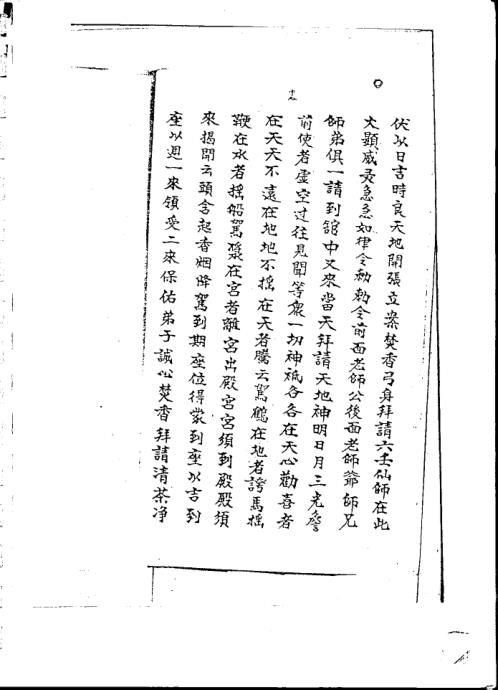 伏以日吉時良天地開張立案焚香弓身拜請六壬仙師在此
大顯威灵急急如律令勅勅令前面老師公後面老師爺師兄
師弟俱一請到舘中又來當天拜請天地神明日月三光詹
前使者虚空过往見聞等衆一切神祗各各在天心勸喜者
在天天不遠在地地不摇在天者騰云駕鶴在地者誇馬摇
鞭在水者摇船駕槳在宮者離宮出殿宮宮須到殿殿須
來揭開云頭舍起香烟降駕到期座位得蒙到座以吉到
座以週一來領受二來保佑弟子誠心焚香拜請清茶净